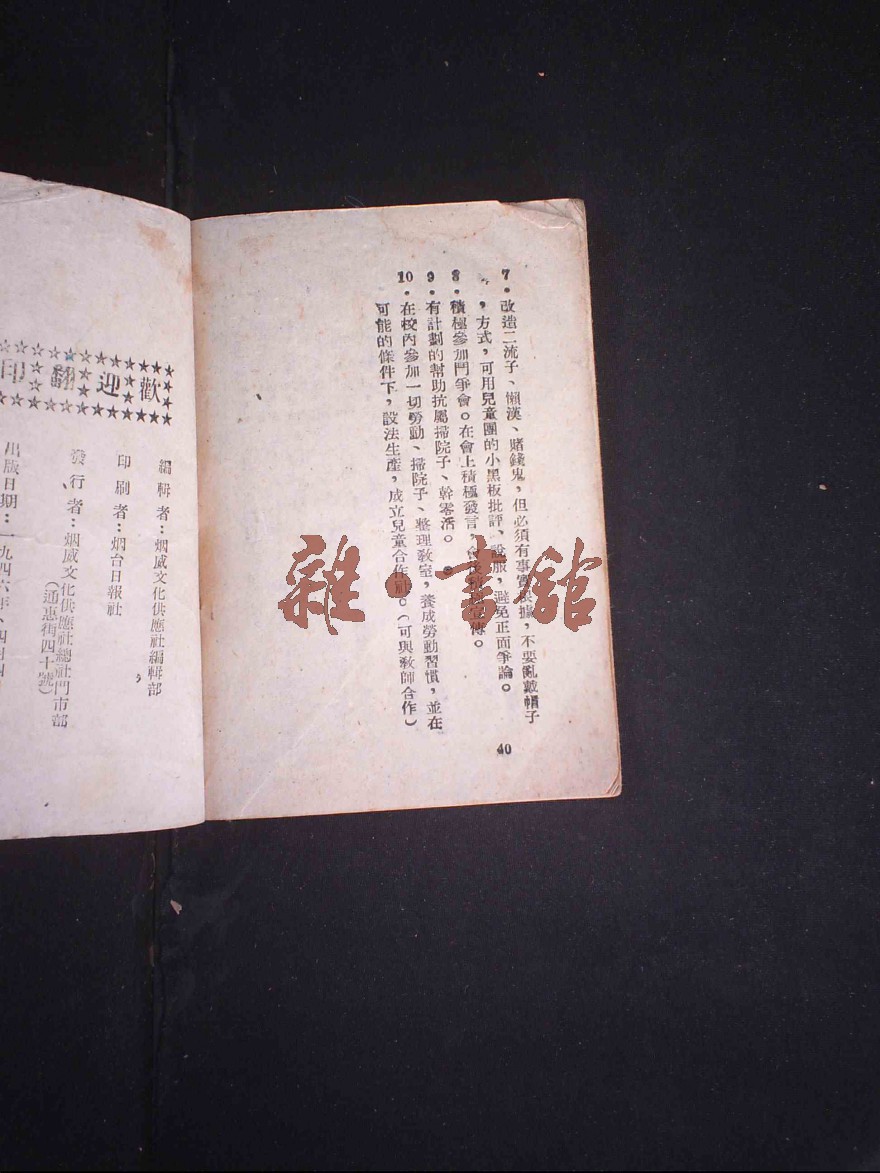 7・改造二流子、懶漢、賭錢鬼，但必須有事實根據，不要亂戴帽子
，方式，可用兒童團的小黑板批評、說服，避免正面爭論。
8・積極參加鬥爭會。在會上積極發言，會後
9・有計劃的幫助抗屬掃院子、幹零活。
10・在校內參加一切勞動、掃院子、整理教室，養成勞動習慣，並在
可能的條件下，設法生產，成立兒童合作社。（可與教師合作）
40
雜・書館
歡迎翻印
編輯者：烟威文化供應社編輯部
印刷者：烟台日報社
發行者：烟威文化供應社總社門市部
（通惠街四十號）
出版日期：一九四六年、四月